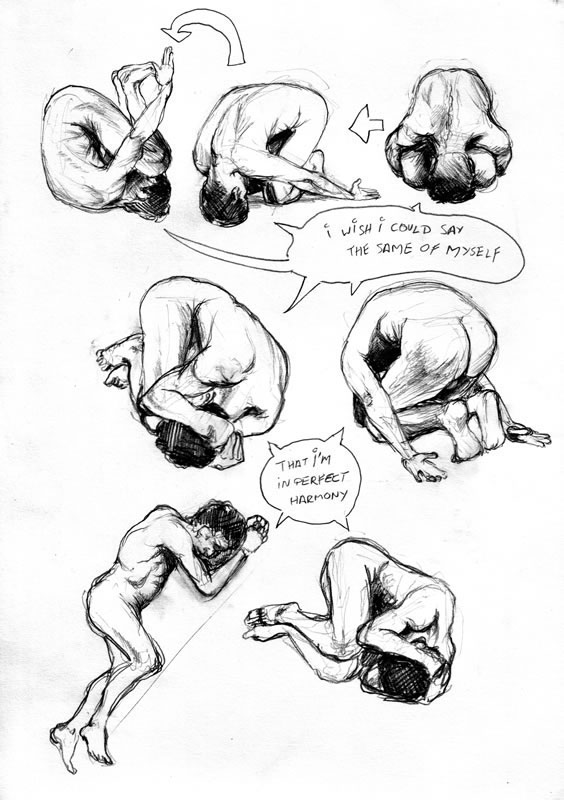 i WISH i COULD SAY
THE SAME OF MYSELF
THAT i'M
IN PERFECT
HARMONY